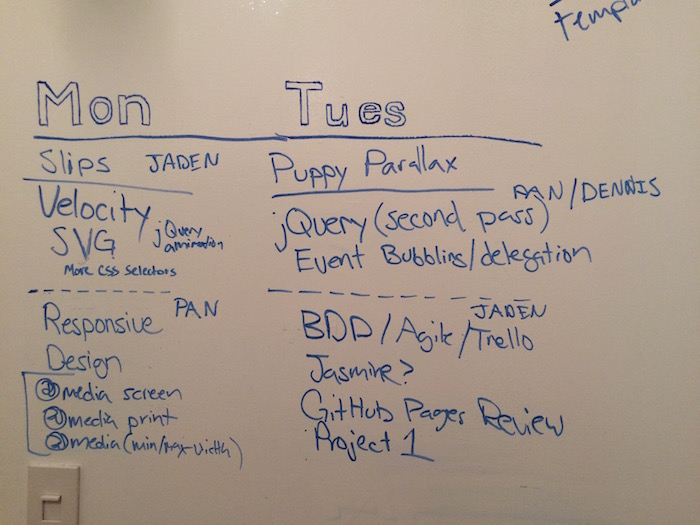 Mon
Slips JADEN
Velocity
SVG
jQuery
animation
More CSS selectors
PAN
Responsive
Design
@media screen
@media print
@media (min/max-width)
Tues
Puppy Parallax
PAN/DENNIS
jQuery (second pass)
Event Bubbling/delegation
JADEN
BDD/Agile/Trello
Jasmine?
GitHub Pages Review
Project 1